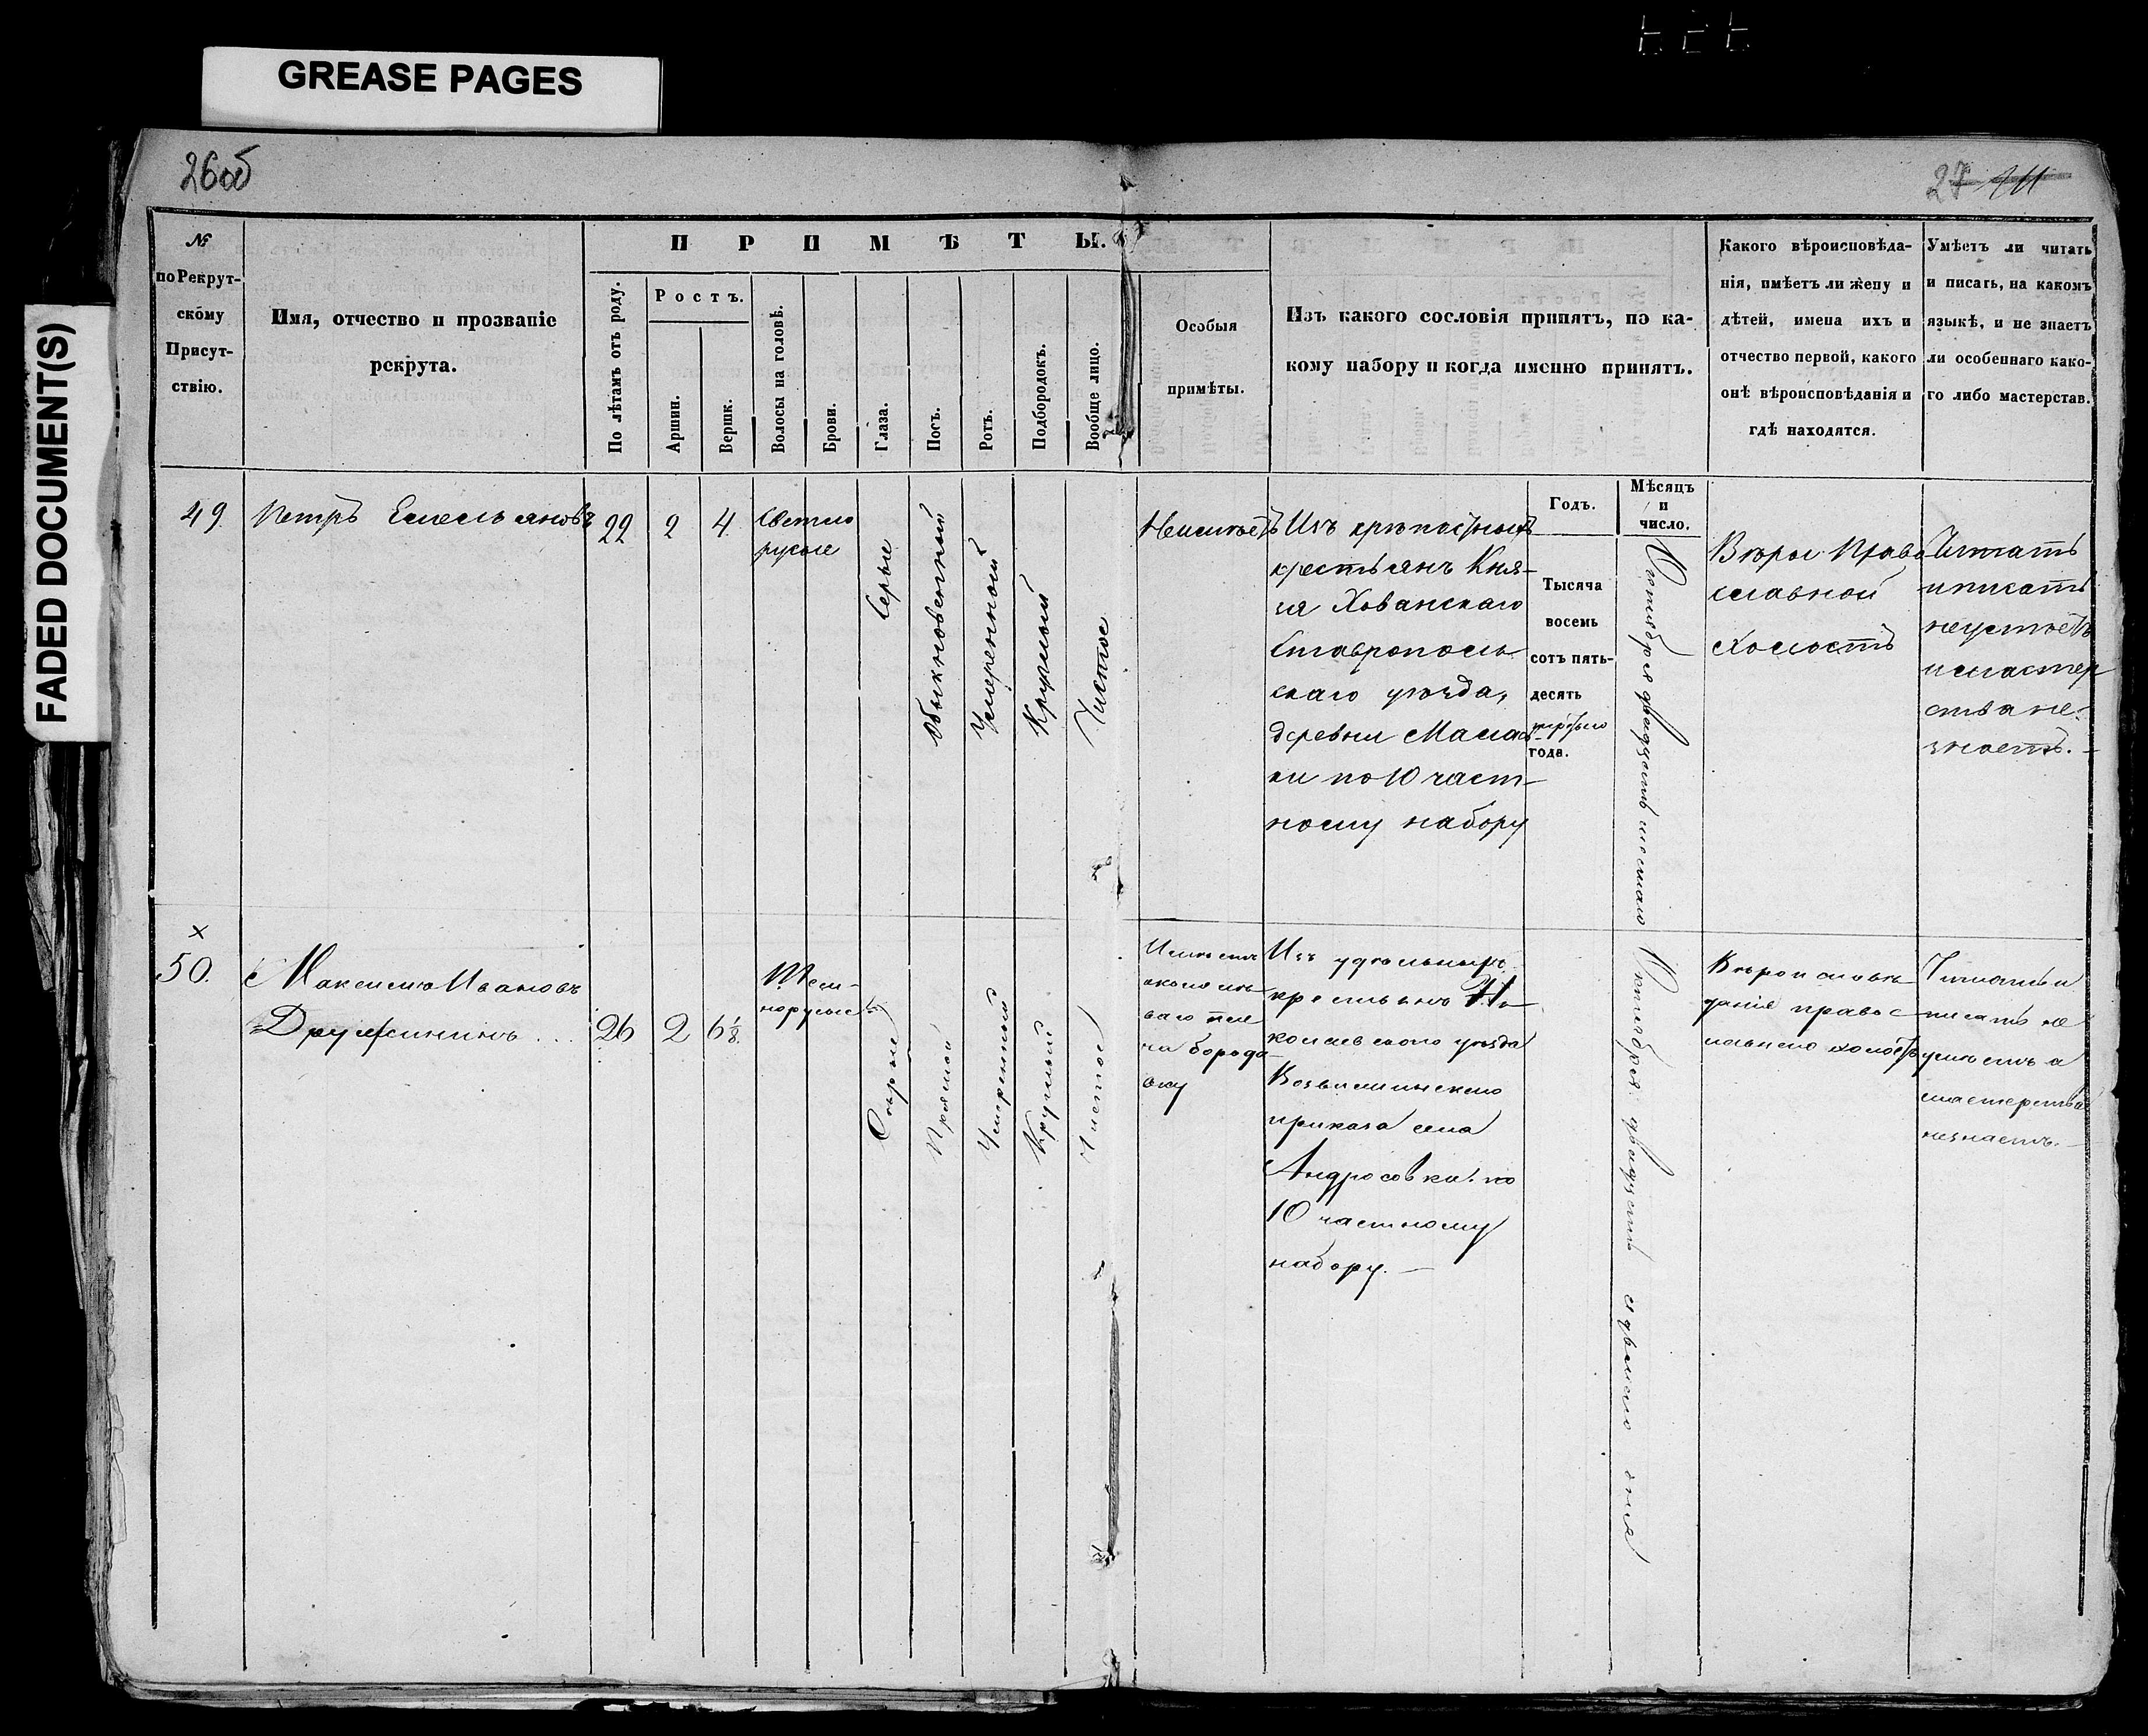 GREASE PAGES
FADED DOCUMENT(S)
26об
27
№
по Рекрут-
скому
Присут-
ствію.
Имя, отчество и прозваніе
рекрута.
ПРИМѢТЫ.
По лѣтамъ отъ роду.
Ростъ.
Аршин.
Вершк.
Волосы на головѣ.
Брови.
Глаза.
Носъ.
Ротъ.
Подбородокъ.
Вообще лицо.
Особыя
примѣты.
Изъ какого сословія принятъ, по ка-
кому набору и когда именно принятъ.
Какого вѣроисповѣда-
нія, имѣетъ ли жену и
дѣтей, имена ихъ и
отчество первой, какого
онѣ вѣроисповѣданія и
гдѣ находятся.
Умѣетъ ли читать
и писать, на какомъ
языкѣ, и не знаетъ
ли особеннаго како-
го либо мастерств.
Годъ.
Мѣсяцъ
и
число.
49.
Петръ Емельяновъ
22
2
4
Светло
русые
Серые
Обыкновенный
Умеренной
Круглый
Чистое
Неимѣетъ
Изъ крѣпостныхъ
крестьянъ Кня-
зя Хованскаго
Ставрополь
скаго уѣзда,
деревни
ки по 10 част-
ному набору
Тысяча
восемь
сотъ пять-
десять
третьяго
года.
Октября двадцать шестаго
Вѣры Право
славной
холостъ
Читать
и писать
неумѣетъ
и мастер
ства не-
знаетъ.-
х
50.
Максимъ Ивановъ
Дружининъ...
26
2
6 1/8.
Тем-
норусые
Сѣрые
Прямой
Умеренный
Круглый
Чистое
Имѣетъ
на бородо
Изъ удѣльныхъ
крестьянъ Ни
колаевскаго уѣзда
приказа села
Андросовки. по
10 частному
набору.-
Октября двадцать седьмаго дня
Вѣроисповѣ
данія правос
лавнаго холостъ
Читать и
писать не
умѣетъ и
мастерства
незнаетъ.-